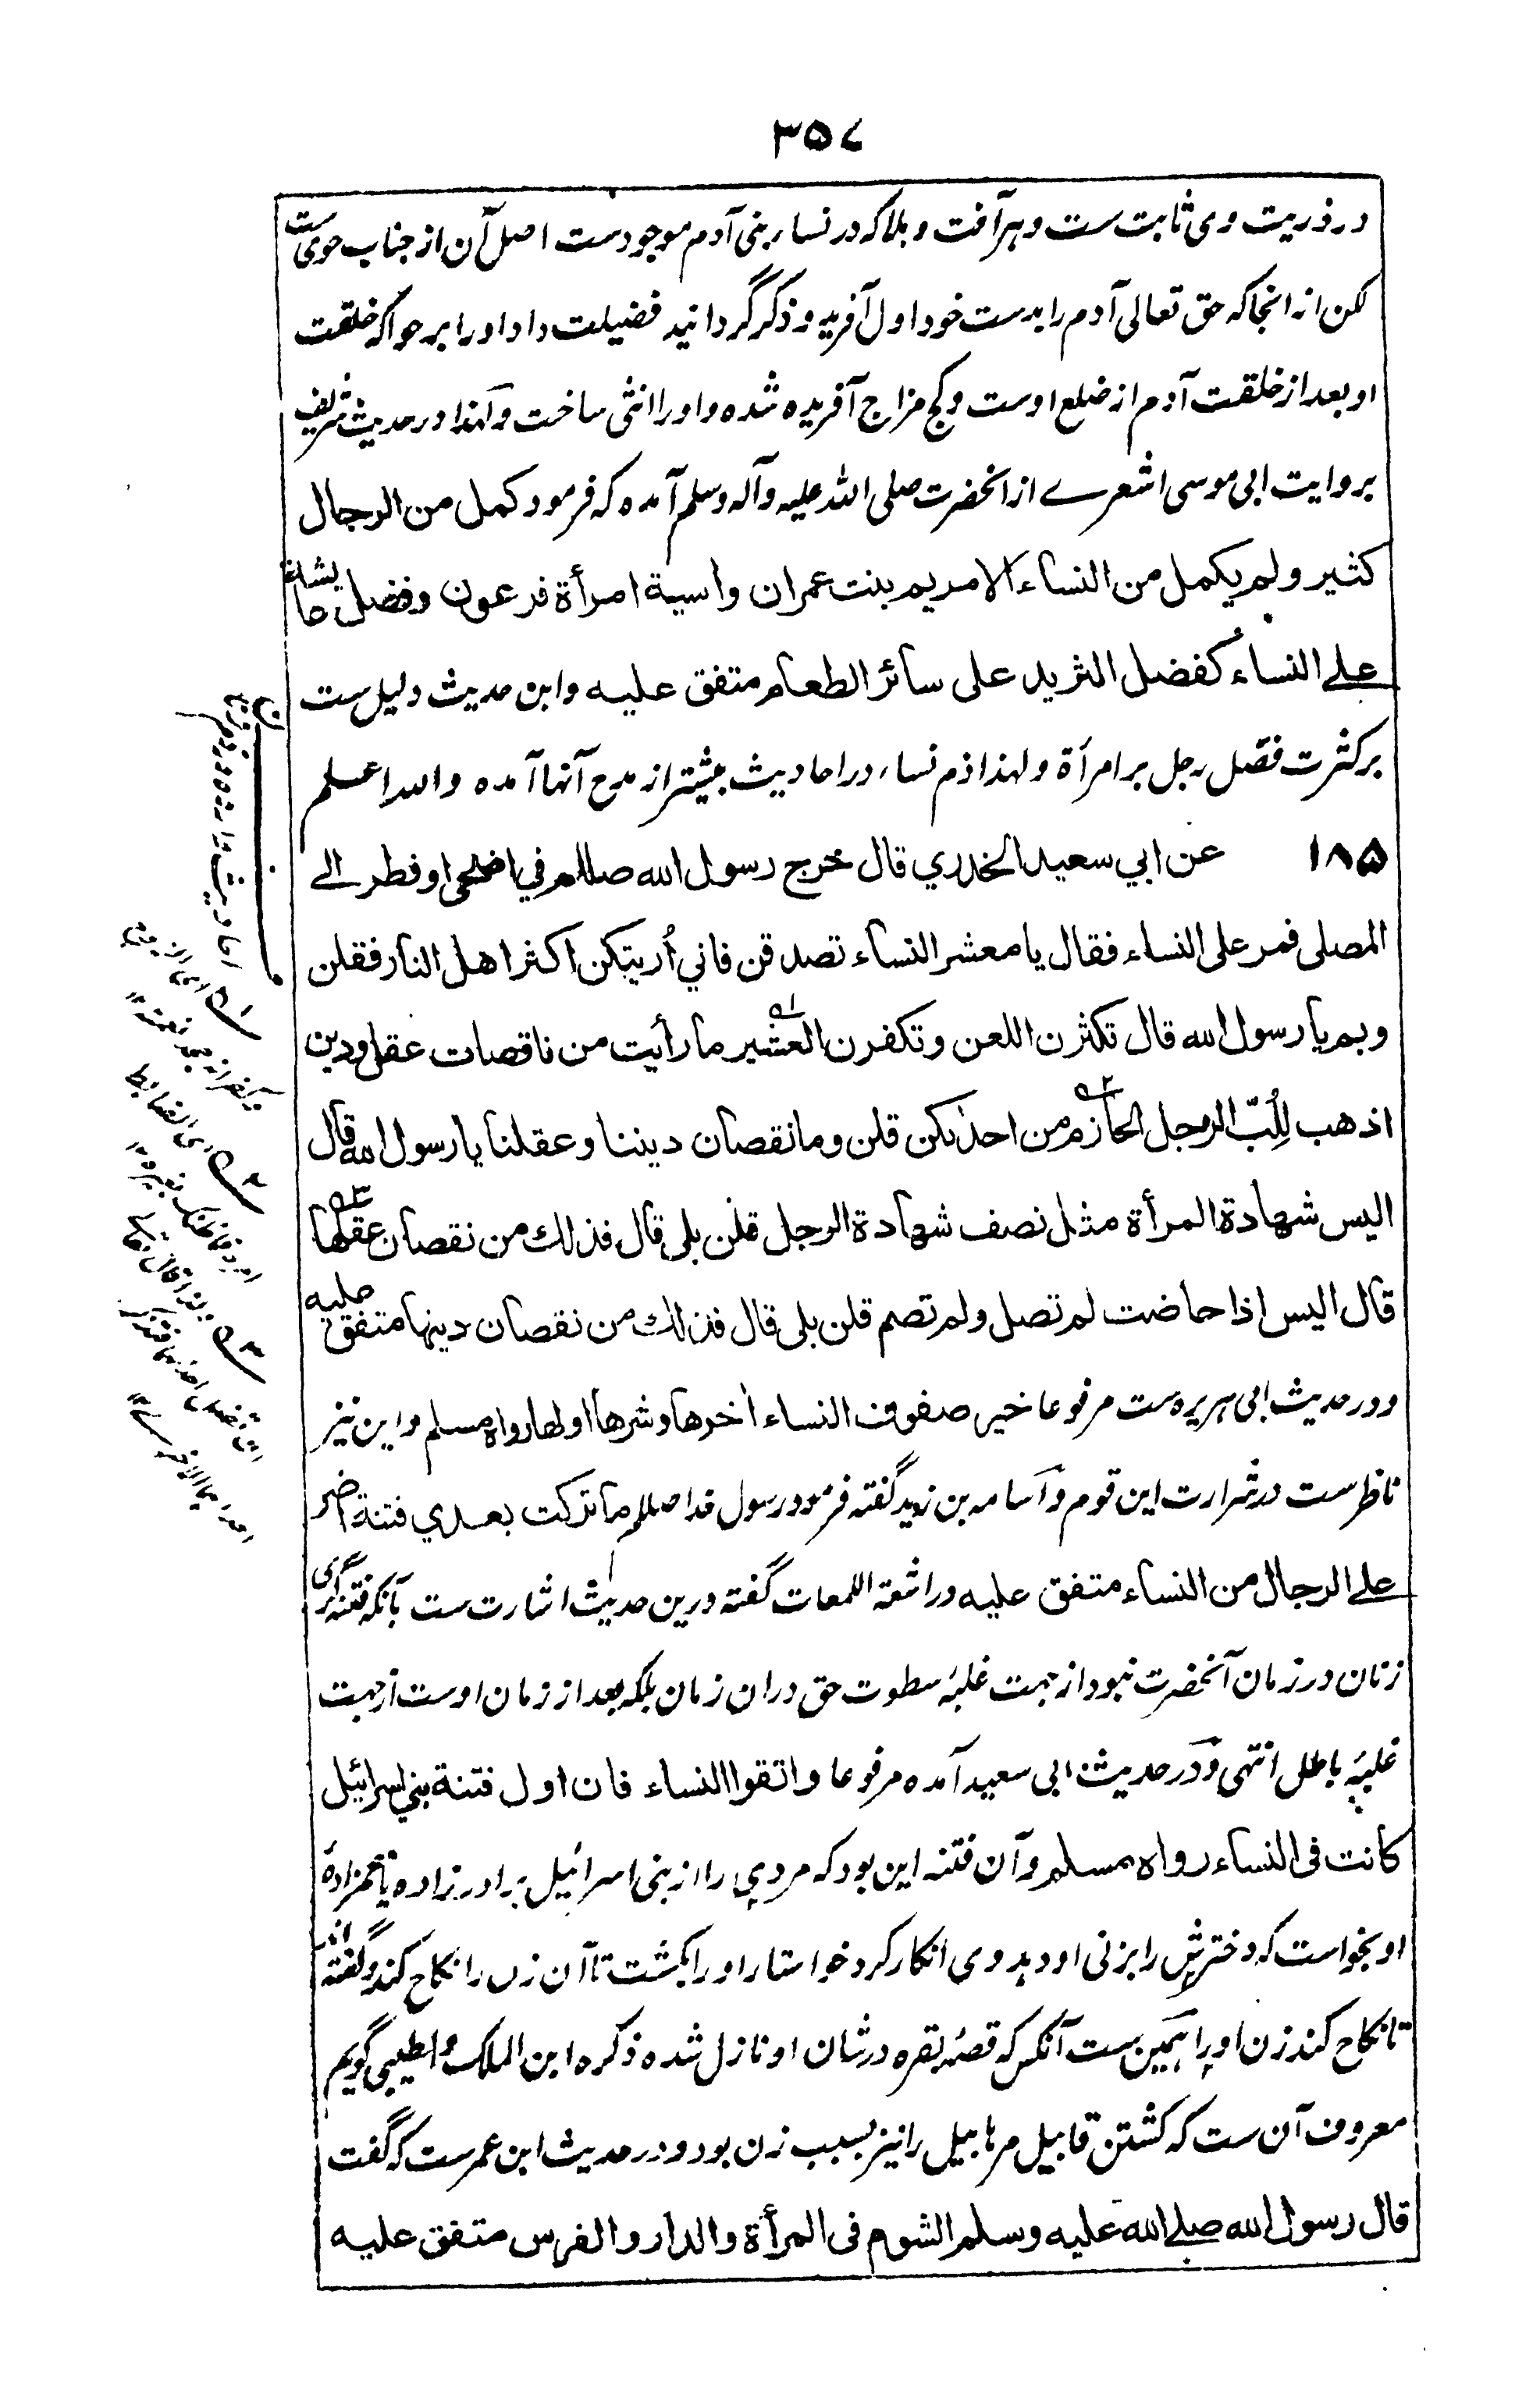 ۳۵۷
در ذریت وی ثابت ست و ہر آفت و بلا کہ در نساء بنی آدم موجودست اصل آن از جناب حوی ست
لکن از انجا کہ حق تعالی آدم را بدست خود اول آفرید و ذکر گردانید فضیلت داد او را بر حوا کہ خلقت
او بعد از خلقت آدم از ضلع اوست و کج مزاج آفریدہ شدہ و او را انثی ساخت و لہذا در حدیث شریف
بروایت ابی موسی اشعرے از انحضرت صلی اللہ علیہ وآلہ وسلم آمدہ کہ فرمود کمل من الرجال
کثیر ولم یکمل من النساء الا مریم بنت عمران واسیة امرأة فرعون وفضل عایشة
علے النساء کفضل الثرید علی سائر الطعام متفق علیہ واین حدیث دلیل ست
بر کثرت فضل رجل بر امرأة و لہذا ذم نساء در احادیث بیشتر از مدح آنہا آمدہ واللہ اعلم
۱۸۵ عن ابي سعيد الخدري قال خرج رسول الله صللم في اضحى او فطر الے
المصلى فمر على النساء فقال يا معشر النساء تصدقن فاني أُريتكن اكثر اهل النار فقلن
وبم يا رسول الله قال تكثرن اللعن وتكفرن العشير ما رأيت من ناقصات عقل ودين
اذهب لِلُبّ الرجل الحازم من احدٰىكن قلن وما نقصان ديننا وعقلنا يا رسول الله قال
اليس شهادة المرأة مثل نصف شهادة الرجل قلن بلى قال فذالك من نقصان عقلها
قال اليس اذا حاضت لم تصل ولم تصم قلن بلى قال فذالك من نقصان دينها متفق عليه
و در حدیث ابی ہریرہ ست مرفوعا خير صفوف النساء اخرها وشرها اولها رواه مسلم و این نیز
ناظرست در شرارت این قوم و اسامہ بن زید گفتہ فرمود رسول خدا صللم ما تركت بعدي فتنة اضر
علے الرجال من النساء متفق عليه در اشعۃ اللمعات گفتہ درین حدیث اشارت ست بآنکہ فتنہ گری
زنان در زمان آنحضرت نبود از جہت غلبۂ سطوت حق دران زمان بلکہ بعد از زمان اوست از جہت
غلبۂ باطل انتہی و در حدیث ابی سعید آمدہ مرفوعا واتقوا النساء فان اول فتنة بني اسرائيل
كانت فى النساء رواه مسلم و آن فتنہ این بود کہ مردی را از بنی اسرائیل برادرزادہ یا عمزادۂ
او بخواست کہ دخترش را بزنی او دہد وی انکار کرد خواستار او را بکشت تا آن زن را نکاح کند و گفتہ اند
تا نکاح کند زن او را ہمین ست آنکس کہ قصۂ بقرہ در شان او نازل شدہ ذکرہ ابن الملک والطیبی گویم
معروف آن ست کہ کشتن قابیل مر ہابیل را نیز بسبب زن بود و در حدیث ابن عمرست کہ گفت
قال رسول الله صلے الله عليه وسلم الشوم فى المرأة والدار والفرس متفق عليه